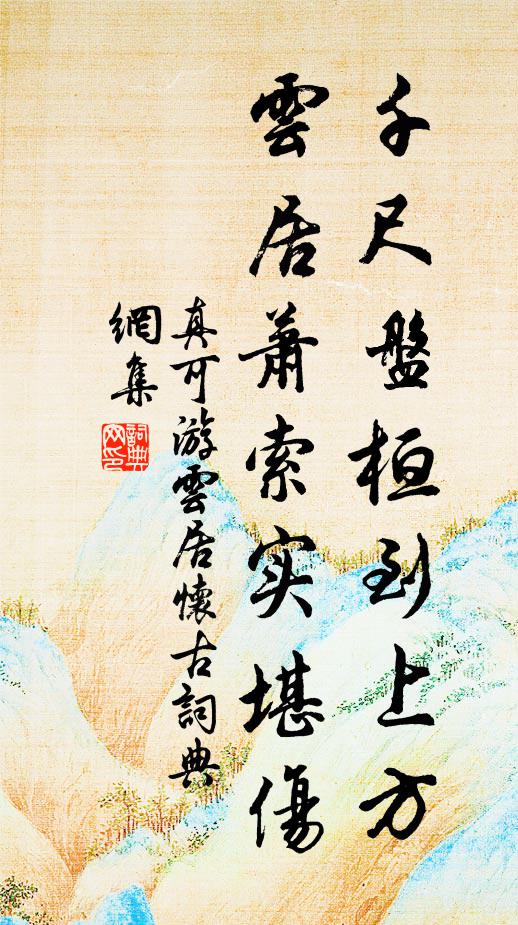 千尺盤桓到上方
雲居蕭索实堪傷
真可游雲居懷古詞典
網集
詞典
网印